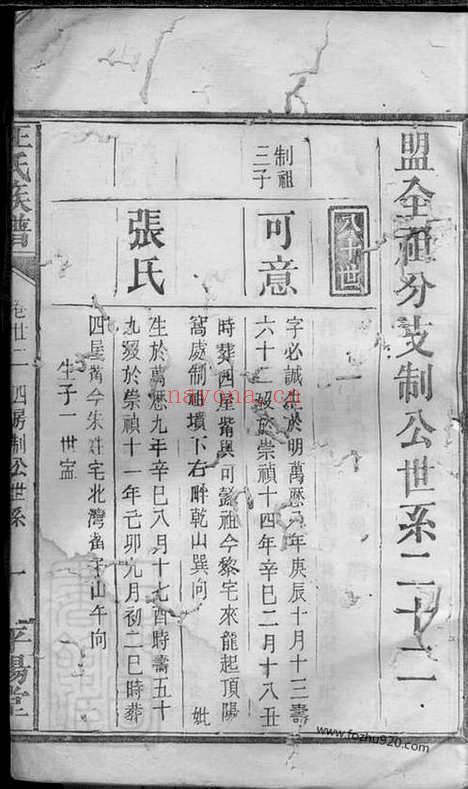 盟全祖分支制公世系二十二
八十世
制祖
三子
可意
字必誠生於明萬歷八年庚辰十月十三壽
六十二歿於崇禎十四年辛巳二月十八丑
時葬四屋背與可懿祖今黎宅來龍起頂陽
窩處制祖墳下右畔乾山巽向 妣
張氏
生於萬歷九年辛巳八月十七酉時壽五十
九歿於崇禎十一年己卯九月初二巳時葬
四屋背今朱姓宅北灣雀子山午向
生子一 世富
汪氏族譜
卷廿二 四房制公世系 一
平陽堂
nayona.cn
www.fozhu920.com